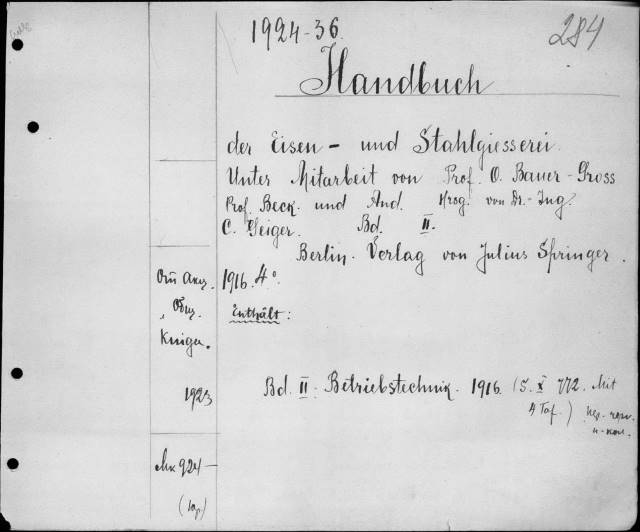 1924-36.
284
Handbuch
der Eisen - und Stahlgiesserei.
Unter Mitarbeit von Prof. O. Bauer-Gross
Prof. Beck. und And. Hrsg. von Dr.-Ing.
C. Geiger. Bd. II.
Berlin. Verlag von Julius Springer.
1916. 4°.
Enthält:
Книги.
1923
Bd. II. Betriebstechnik. 1916. (S. X 772. Mit
4 Taf.)
924-